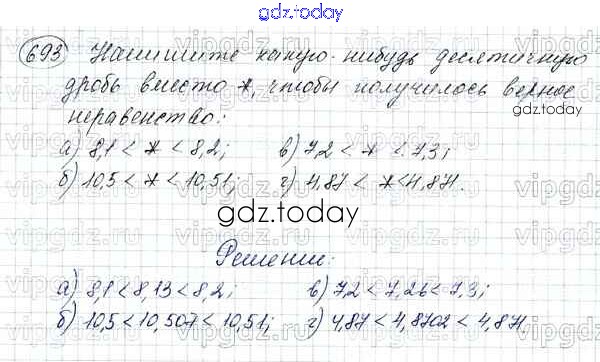 gdz.today
693 Напишите какую-нибудь десятичную
дробь вместо *, чтобы получилось верное
gdz.today
неравенство:
а) 8,1 < * < 8,2; в) 7,2 < * < 7,3;
б) 10,5 < * < 10,51; г) 4,87 < * < 4,871.
gdz.today
Решение:
а) 8,1 < 8,13 < 8,2; в) 7,2 < 7,26 < 7,3;
б) 10,5 < 10,507 < 10,51; г) 4,87 < 4,8702 < 4,871.